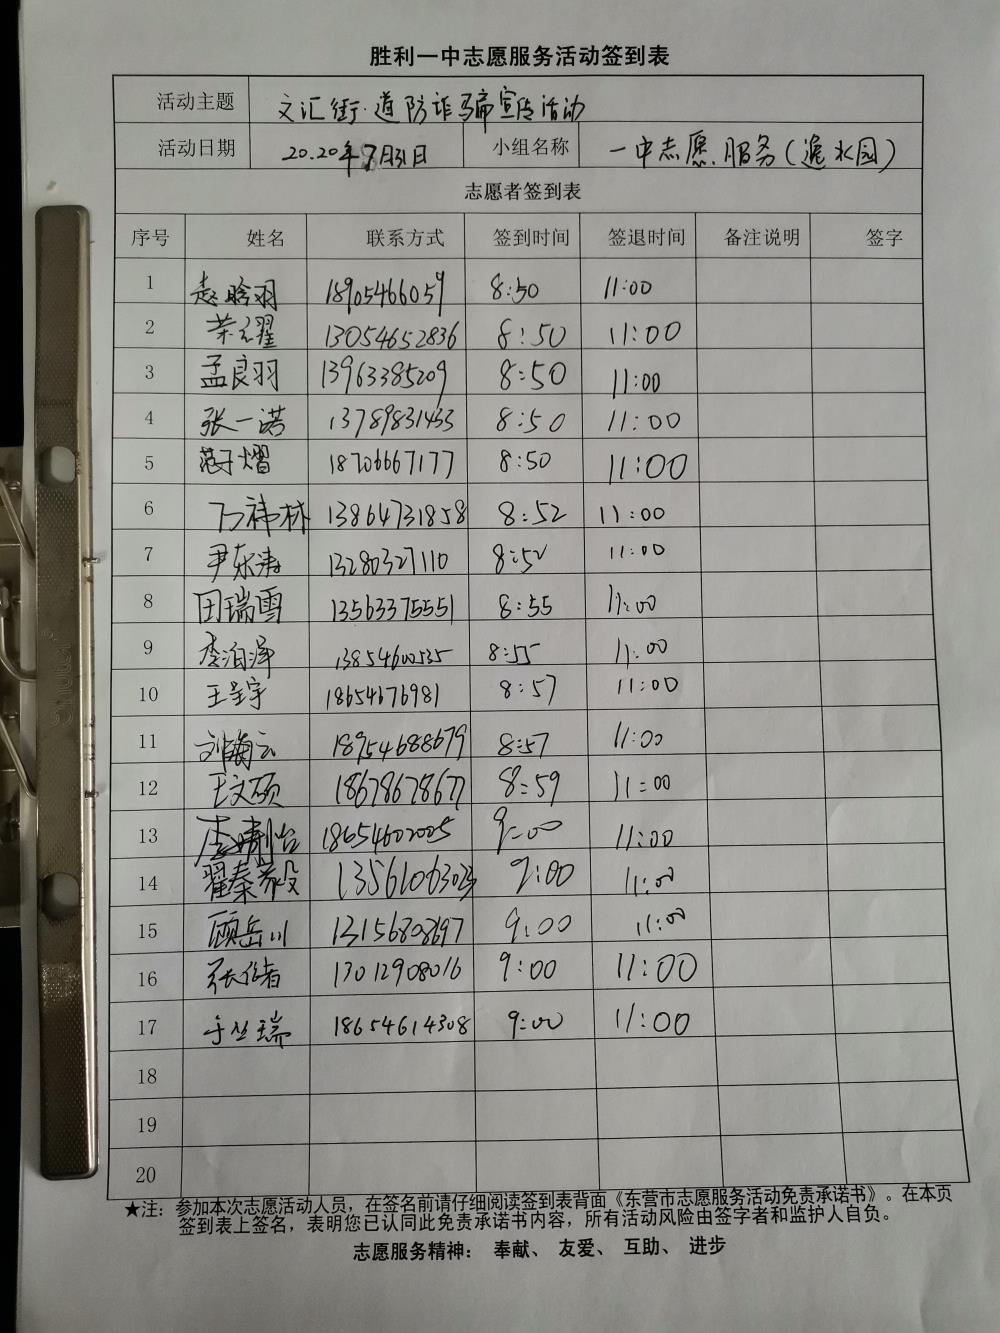 胜利一中志愿服务活动签到表
活动主题 文汇街道防诈骗宣传活动
活动日期 2020年8月31日 小组名称 一中志愿服务(逸水园)
志愿者签到表
序号 姓名 联系方式 签到时间 签退时间 备注说明 签字
1 赵晗羽 18905466059 8:50 11:00
2 荣耀 13054652836 8:50 11:00
3 孟良羽 13963385209 8:50 11:00
4 张一诺 13789831433 8:50 11:00
5 熠 18706667177 8:50 11:00
6 石祎林 13864731858 8:52 11:00
7 尹东涛 13280327110 8:52 11:00
8 田瑞雪 13563375551 8:55 11:00
9 李泊泽 13854600535 8:55 11:00
10 王呈宇 18654676981 8:57 11:00
11 刘云 18954688679 8:57 11:00
12 王文硕 18678678677 8:59 11:00
13 李婧怡 18654602005 9:00 11:00
14 翟秦毅 9:00 11:00
15 顾岳川 13156808697 9:00 11:00
16 张 17012908016 9:00 11:00
17 于丛瑞 18654614308 9:00 11:00
18
19
20
★注:参加本次志愿活动人员,在签名前请仔细阅读签到表背面《东营市志愿服务活动免责承诺书》。在本页
签到表上签名,表明您已认同此免责承诺书内容,所有活动风险由签字者和监护人自负。
志愿服务精神: 奉献、 友爱、 互助、 进步